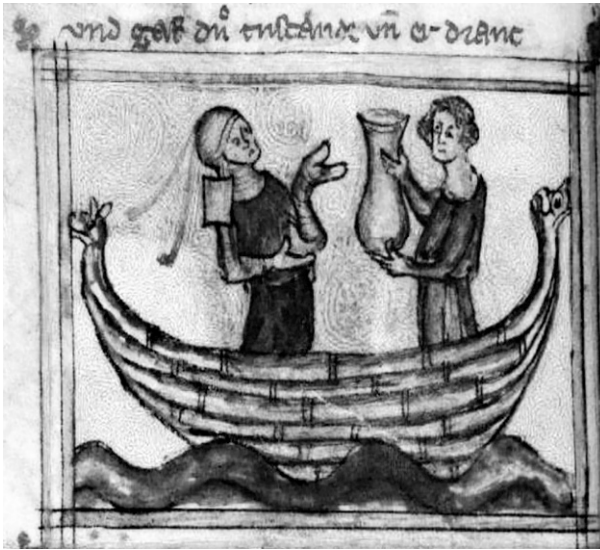 vnd gab dů tristande vñ er dranc